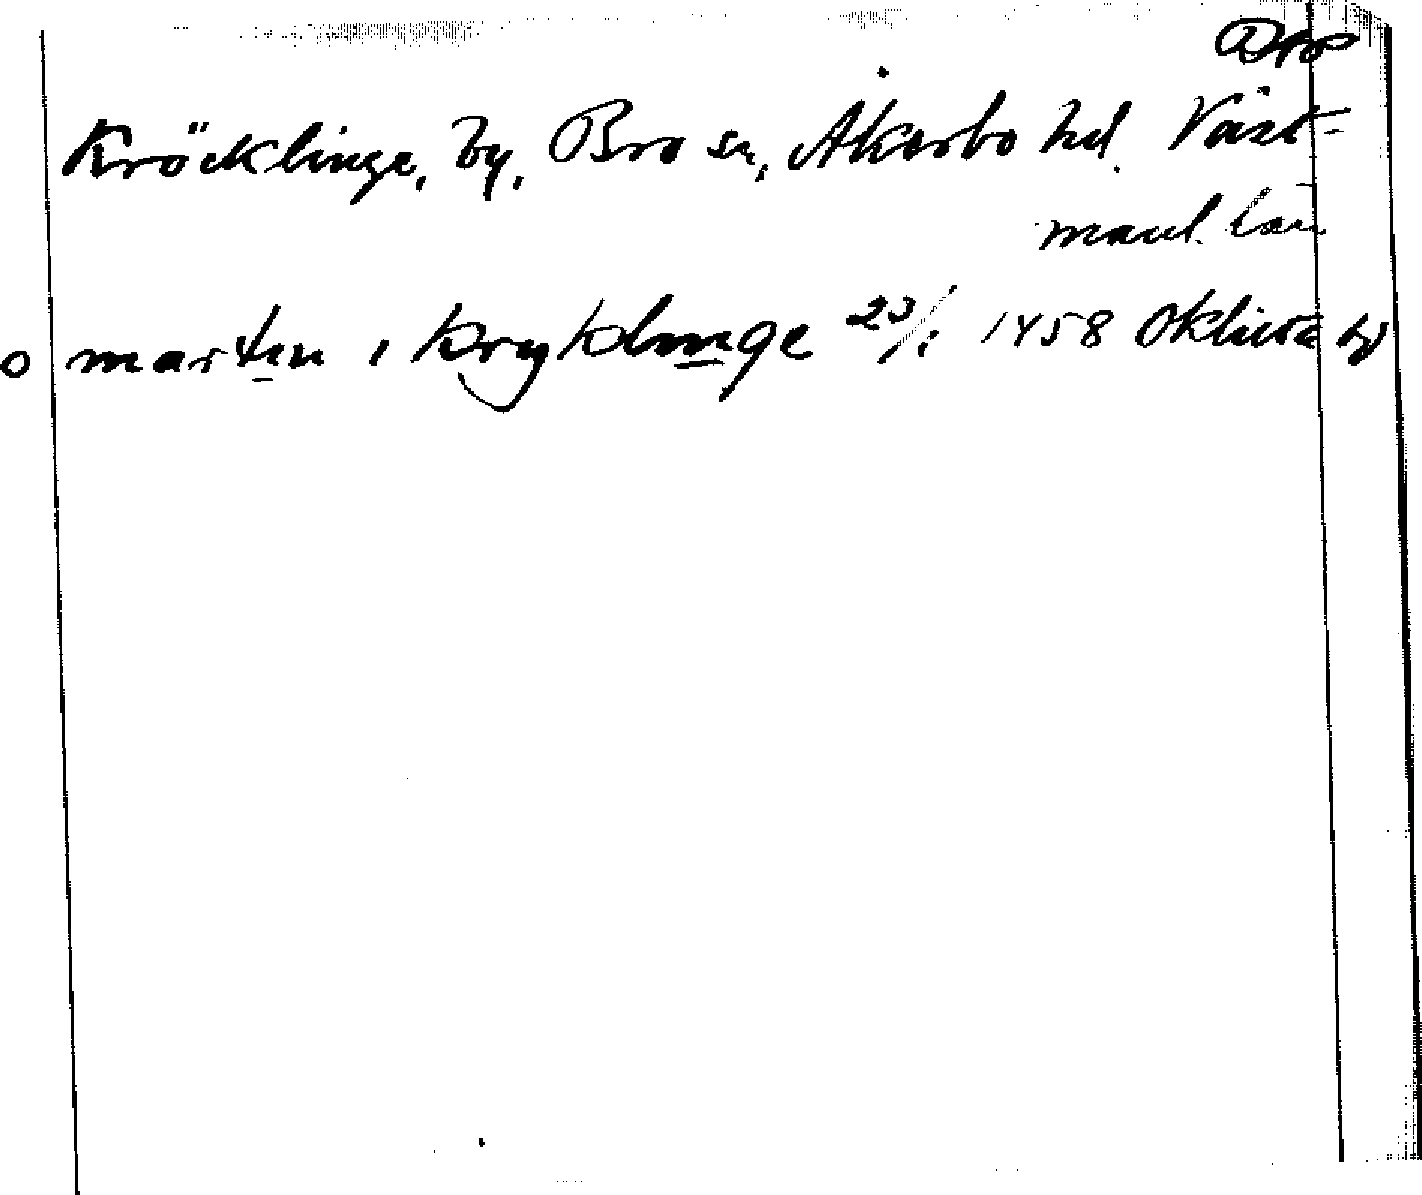 Kröcklinge, by, Bro sn, Åkerbo hd. Väst-
manl. län
o marten i kryklinge 23/1 1458 Oklista by